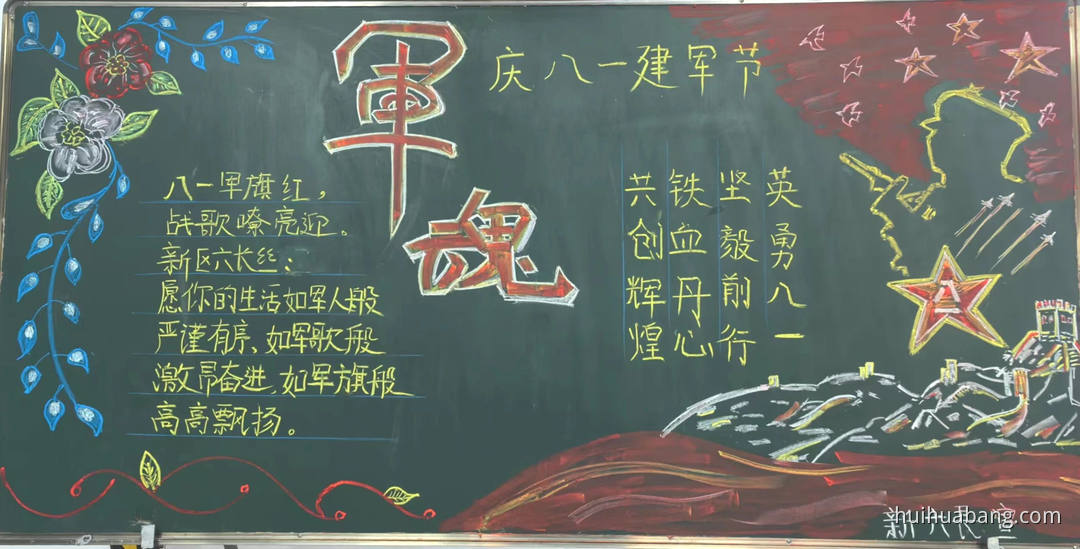 軍魂
庆八一建军节
八一军旗红，
战歌嘹亮迎。
新区六长丝：
愿你的生活如军人般
严谨有序、如军歌般
激昂奋进,如军旗般
高高飘扬。
英勇八一
坚毅前行
铁血丹心
共创辉煌
八一
huihuabang.com